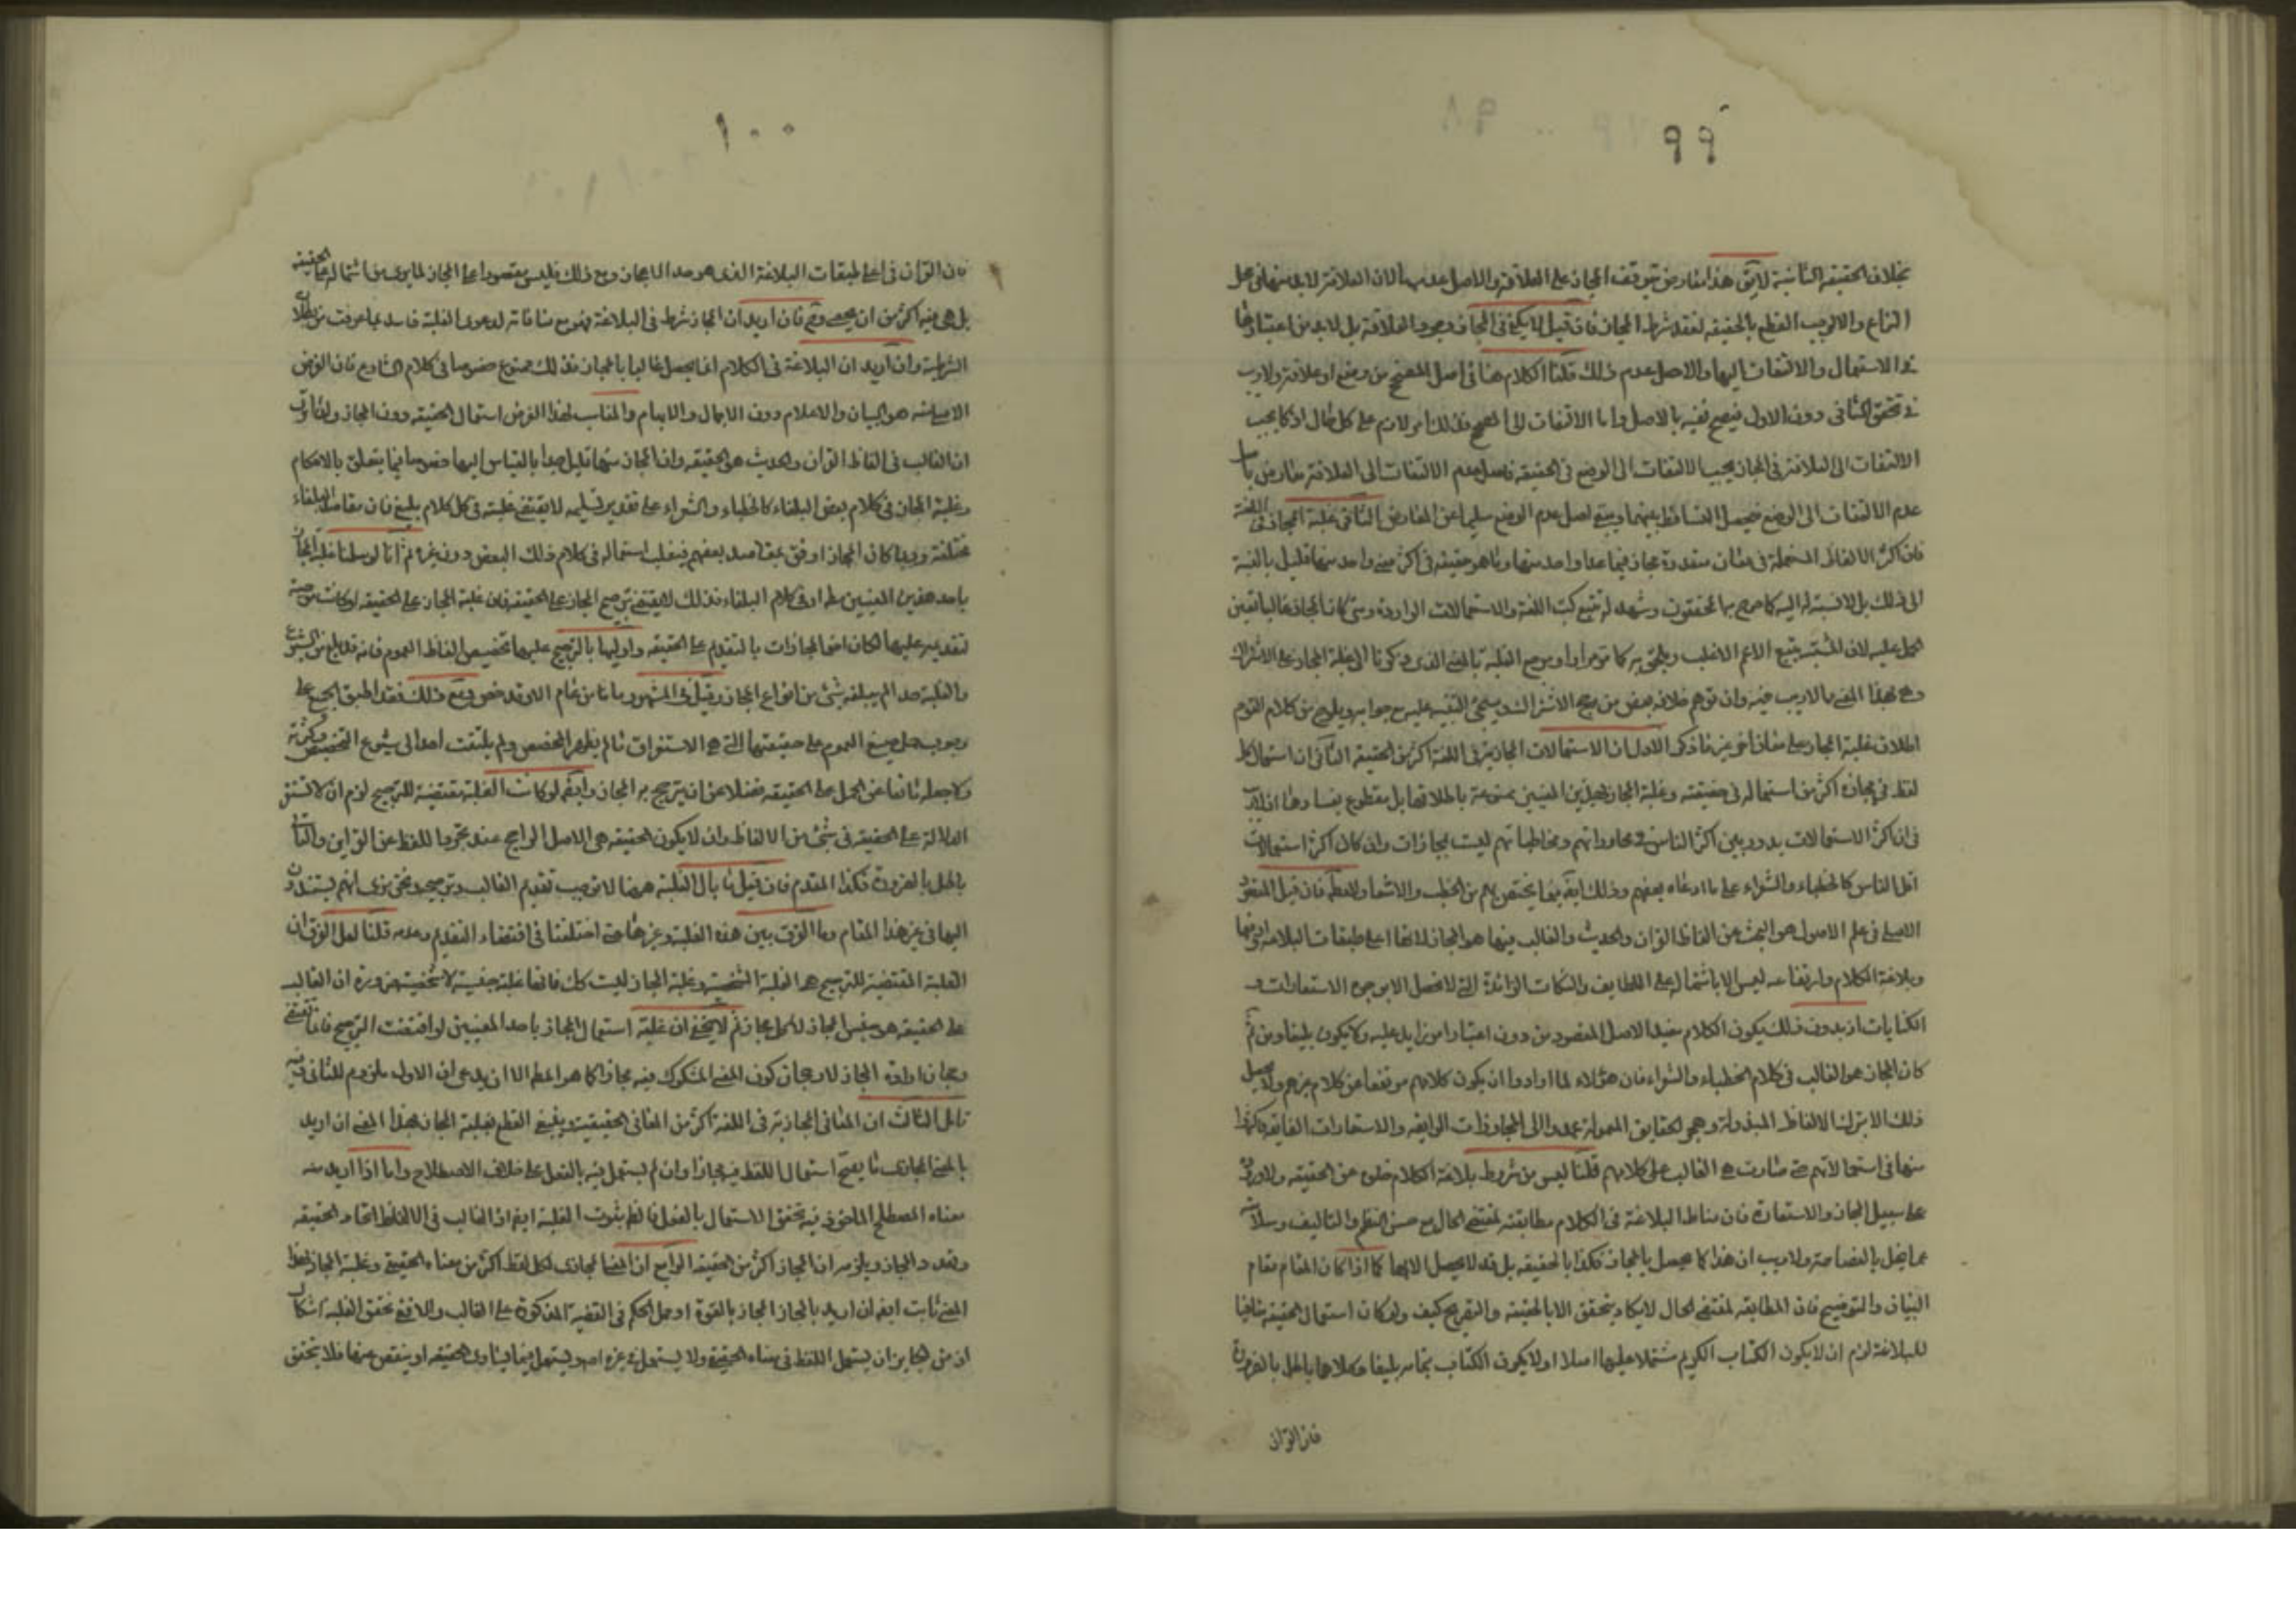 ٩٩
بخلاف الحقيقة الثانية لايق هذا معارض بتوقف المجاز على العلاقة والاصل عدمها لان العلاقة لابد منها في محل
النزاع والا لوجب القطع بالحقيقة لفقد شرط المجاز فان قيل لا يكفي في المجاز وجود العلاقة بل لابد من اعتبارها
في الاستعمال والالتفات اليها والاصل عدم ذلك قلنا الكلام هنا في اصل المصحح من وضع او علاقة ولاريب
في تحقق الثاني دون الاول فيصح نفيه بالاصل واما الالتفات الى المصحح فذلك امر لازم على كل حال اذ كما يجب
الالتفات الى العلاقة في المجاز يجب الالتفات الى الوضع في الحقيقة فاصل عدم الالتفات الى العلاقة معارض باصل
عدم الالتفات الى الوضع فيحصل التساقط بينهما ويبقى اصل عدم الوضع سليما عن المعارض الثاني غلبة المجاز في اللغة
فان اكثر الالفاظ المستعملة في معان متعددة مجاز فيما عدا واحد منها وما هو حقيقة في اكثر من معنى واحد منها قليل بالنسبة
الى ذلك بل لا نسبة له اليه كما صرح به المحققون وشهد له تتبع كتب اللغة والاستعمالات الواردة ومتى كان المجاز غالبا تعين
الحمل عليه لان المشتبه يتبع الاعم الاغلب ويلحق به كما مر مرارا ومرجع الغلبة بالمعنى الذي ذكرنا الى غلبة المجاز على الاشتراك
وهي بهذا المعنى مما لاريب فيه وان توهم خلافه بعض من رجح الاشتراك وسيجئ التنبيه عليه مع جوابه ويلوح من كلام القوم
اطلاق غلبة المجاز على معان اخر غير ما ذكر الاول ان الاستعمالات المجازية في اللغة اكثر من الحقيقة الثاني ان استعمال كل
لفظ في مجازه اكثر من استعماله في حقيقته وغلبة المجاز بهذين المعنيين ممنوعة باطلاقها بل مقطوع بفسادها اذ لاريب
في ان اكثر الاستعمالات يدور بين اكثر الناس في محاوراتهم ومخاطباتهم ليست بمجازات وان كان اكثر استعمالات
اقل الناس كالخطباء والشعراء على ما ادعاه بعضهم وذلك ايضا فيما يختص بهم من الخطب والاشعار فان قيل المقصود
الاصلي في علم الاصول هو البحث عن الفاظ القران والحديث والغالب فيها هو المجاز لانها اعلى طبقات البلاغة
وبلاغة الكلام وارتفاعه ليس الا باشتماله على اللطايف والنكات الزائدة التي لا تحصل الا بوجوه الاستعارات و
الكنايات اذ بدون ذلك يكون الكلام مفيدا لاصل المقصود من دون اعتبار امر زايد عليه ولا يكون بليغا ومن ثم
كان المجاز هو الغالب في كلام الخطباء والشعراء فان هؤلاء لما ارادوا ان يكون كلامهم مرتفعا عن كلام غيرهم ولا يحصل
ذلك الا بترك الالفاظ المبذولة وهجر الحقايق المعمولة عمدوا الى المجازات الرايقة والاستعارات الفايقة فاكثروا
منها في استعمالاتهم حتى صارت هي الغالب على كلامهم قلنا ليس من شروط بلاغة الكلام خلوه عن الحقيقة ولا وروده
على سبيل المجاز والاستعارة فان مناط البلاغة في الكلام مطابقته لمقتضى الحال مع حسن النظم والتاليف وسلامته
عما يخل بالفصاحة ولاريب ان هذا كما يحصل بالمجاز فكذا بالحقيقة بل قد لا يحصل الا بها كما اذا كان المقام مقام
البيان والتوضيح فان المطابقة لمقتضى الحال لا يكاد يتحقق الا بالحقيقة والتصريح كيف ولو كان استعمال الحقيقة منافيا
للبلاغة لزم ان لا يكون الكتاب الكريم مشتملا عليها اصلا او لا يكون الكتاب بتمامه بليغا وكلاهما باطل بالضرورة
فان القران
١٠٠
فان القران في اعلى طبقات البلاغة الذي هو حد الاعجاز ومع ذلك فليس مقصورا على المجاز لما يرى من اشتماله على الحقيقة
بل هي فيه اكثر من ان يحصى وح فان اريد ان المجاز شرط في البلاغة فمع منافاته لدعوى الغلبة فاسد لما عرفت من بطلان
الشرطية وان اريد ان البلاغة في الكلام انما يحصل غالبا بالمجاز فذلك ممنوع خصوصا في كلام الشارع فان الغرض
الاصلي منه هو البيان والاعلام دون الاجمال والابهام والمناسب لهذا الغرض استعمال الحقيقة دون المجاز
ان الغالب في الفاظ القران والحديث هو الحقيقة وان المجاز منها قليل جدا بالقياس اليها خصوصا فيما يتعلق بالاحكام
وغلبة المجاز في كلام بعض البلغاء كالخطباء والشعراء على تقدير تسليمه لا يقتضي غلبته في كل كلام بليغ فان مقاصد البلغاء
مختلفة وربما كان المجاز اوفق بمقاصد بعضهم فيغلب استعماله في كلام ذلك البعض دون غيره ثم انا لو سلمنا غلبة المجاز
باحد هذين المعنيين مطلقا او في كلام البلغاء فذلك لا يقتضي ترجيح المجاز على الحقيقة فان غلبة المجاز على الحقيقة لو كانت موجبة
لتقديمه عليها لكان احق المجازات بالتقديم على الحقيقة واوليها بالترجيح عليها تخصيص الفاظ العموم فانه قد بلغ من الشيوع
والغلبة حدا لم يبلغه شئ من انواع المجاز وقيل في المشهور ما من عام الا وقد خص ومع ذلك فقد اطبق الجميع على
وجوب حمل صيغ العموم على حقيقتها التي هي الاستغراق ما لم يظهر المخصص ولم يلتفت احد الى شيوع التخصيص وكثرته
ولا جعله مانعا عن الحمل على الحقيقة فضلا عن ان يترجح به المجاز وايضا لو كانت الغلبة مقتضية للترجيح لزم ان لا تستقر
الدلالة على الحقيقة في شئ من الالفاظ وان لا يكون الحقيقة هي الاصل الراجح عند تجرد اللفظ عن القراين والتالي
باطل بالضرورة فكذا المقدم فان قيل ما بال الغلبة ههنا لا توجب تقديم الغالب وترجيحه ونحن نرى انهم يستندون
اليها في غير هذا المقام وما الفرق بين هذه الغلبة وغيرها حتى اختلفتا في اقتضاء التقديم وعدمه قلنا لعل الفرق ان
الغلبة المقتضية للترجيح هو الغلبة الشخصية وغلبة المجاز ليست كك فانها غلبة جنسية لا شخصية ضرورة ان الغالب
على الحقيقة هو جنس المجاز لا كل مجاز ثم لا يخفى ان غلبة استعمال المجاز باحد المعنيين لو اقتضت الترجيح فانما تقتضي
رجحان ارادة المجاز لا رجحان كون المعنى المشكوك فيه مجازا كما هو المط الا ان يدعى ان الاول ملزوم للثاني وفيه
تامل الثالث ان المعاني المجازية في اللغة اكثر من المعاني الحقيقية وينبغي القطع بغلبة المجاز بهذا المعنى ان اريد
بالمعنى المجازي ما يصح استعمال اللفظ فيه مجازا وان لم يستعمل فيه بالفعل على خلاف الاصطلاح واما اذا اريد منه
معناه المصطلح الماخوذ فيه تحقق الاستعمال بالفعل فالظ ثبوت الغلبة ايضا اذ الغالب في الالفاظ اتحاد الحقيقة
وتعدد المجاز ويلزمه ان المجاز اكثر من الحقيقة الرابع ان المعنى المجازي لكل لفظ اكثر من معناه الحقيقي وغلبة المجاز بهذا
المعنى ثابت ايضا ان اريد بالمجاز المجاز بالقوة او حمل الحكم في القضية المذكورة على الغالب والا ففي تحقق الغلبة اشكال
اذ من الجايز ان يستعمل اللفظ في معناه الحقيقي ولا يستعمل في غيره او يستعمل فيما يساوي الحقيقة او ينقص عنها فلا يتحقق